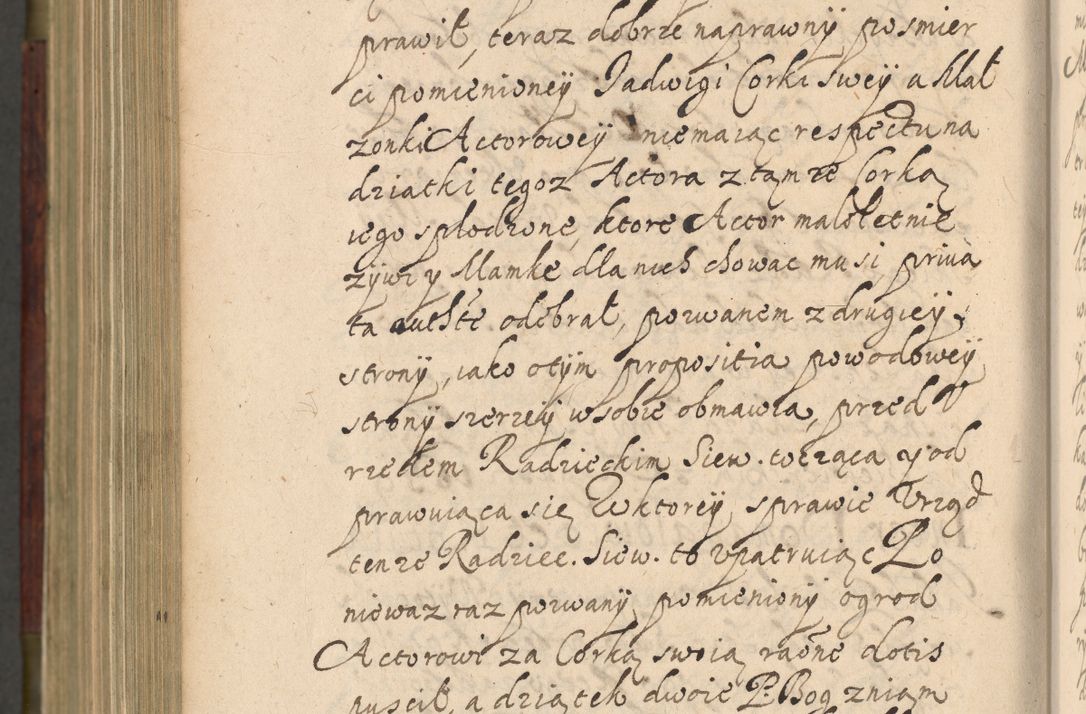 prawił, teraz dobrze naprawny posmier
ci pomienioney Jadwigi Corki swey a Mał
zonki Actorowey niemaiąc respectu na
dziatki tegoz Actora z tąmze Corką
iego spłodzone, ktore Actor małoletnie
zywi y Mamkę dla nich chowac musi priua
ta odebrał, pozwanem z drugiey
strony, iako otym propositia powodowey
strony szerzey wsobie obmawia, przed V
rzedem Radzieckim Siew. tocząca y od
prawuiąca się Wktorey sprawie Vrząd
tenze Radziec. Siew. to vpatruiąc Po
niewaz raz pozwany pomieniony ogrod
Actorowi za Corką swoią dotis
puscił, a dziątek dwoie P. Bog zniąm